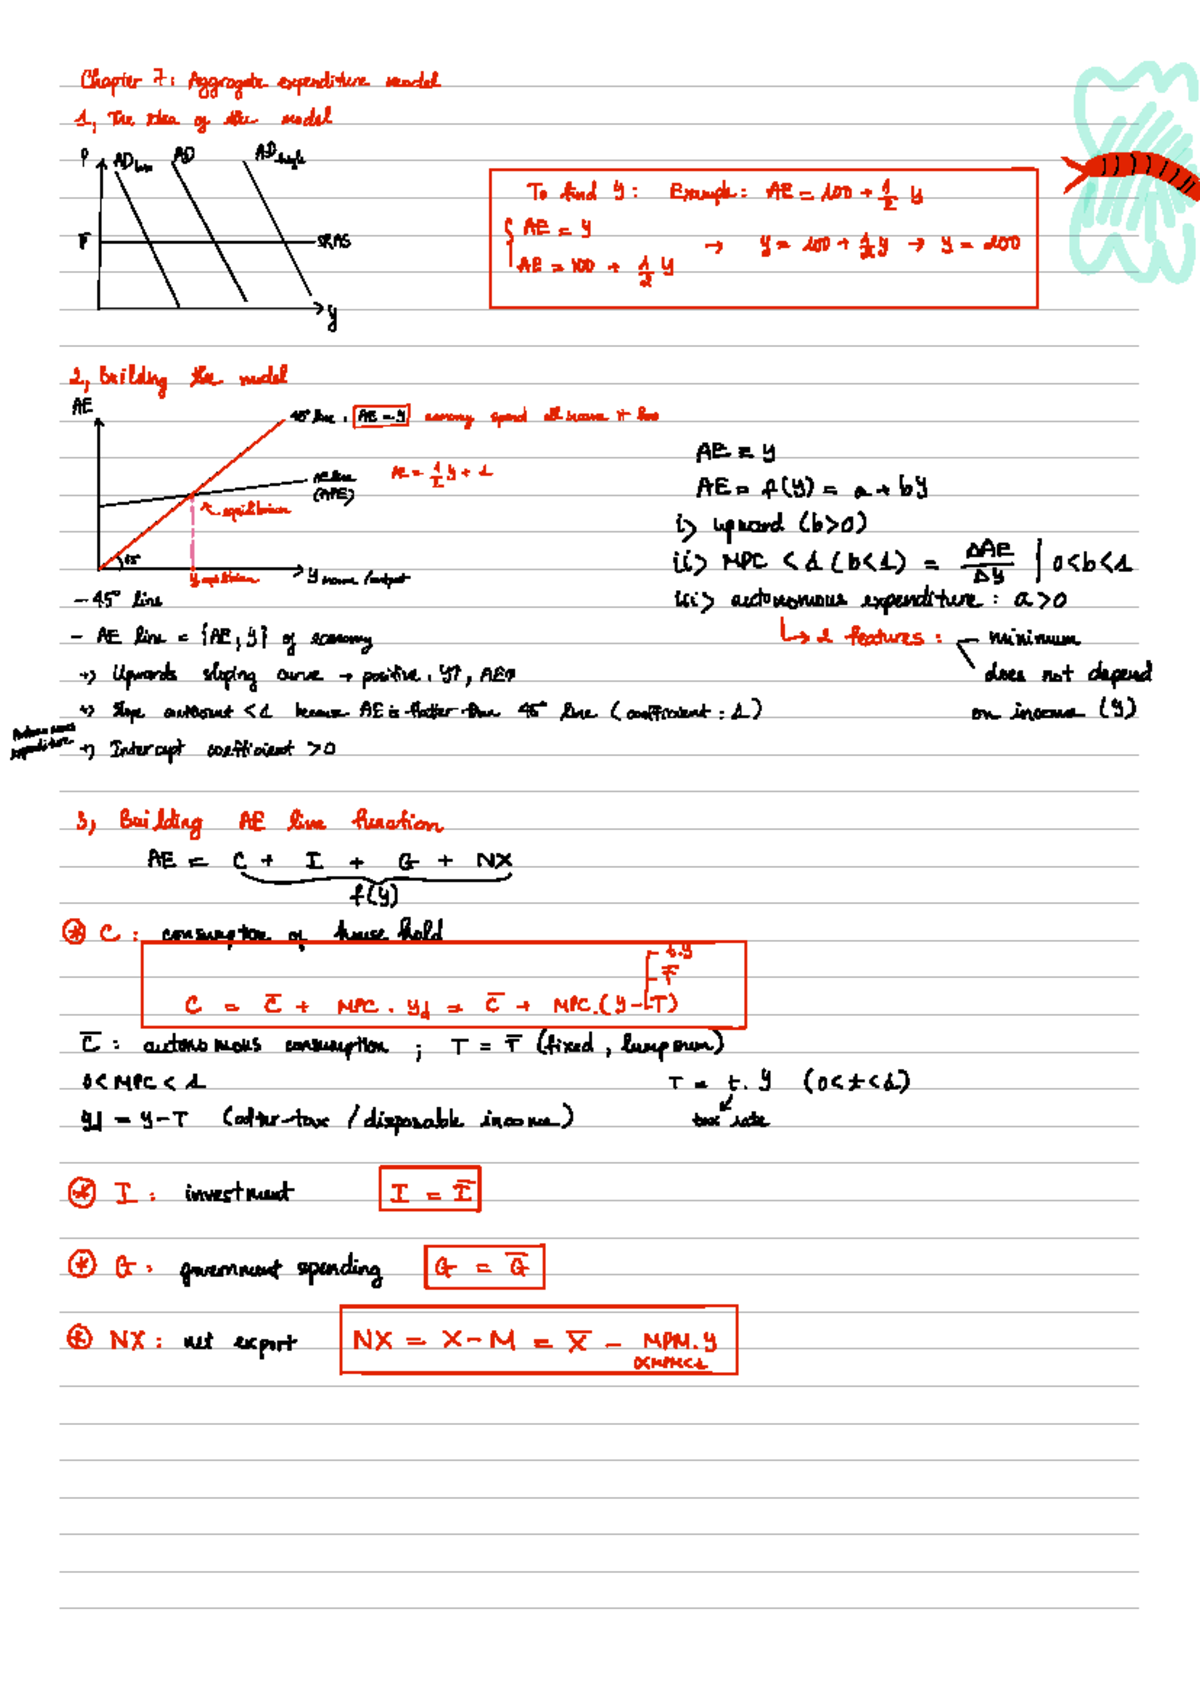 Chapter 7: Aggregate expenditure model
1, The idea of the model
P AD low AD AD high
P̅ SRAS
y
To find y: Example: AE = 100 + 1/2 y
{ AE = y
AE = 100 + 1/2 y → y = 100 + 1/2 y → y = 200
2, Building the model
AE
45° line: AE = y economy spend all income it has
AE line (APE) AE = 1/2 y + 1
equilibrium
45°
y equilibrium y income/output
AE = y
AE = f(y) = a + by
i> upward (b>0)
ii> MPC < 1 (b<1) = ΔAE/Δy | 0<b<1
iii> autonomous expenditure: a>0
↳ 2 features: minimum
does not depend
on income (y)
- 45° line
- AE line = {AE, y} of economy
+) Upwards sloping curve → positive, y↑, AE↑
+) Slope <1 because AE is flatter than 45° line (coefficient: 1)
Autonomous expenditure +) Intercept coefficient >0
3, Building AE line function
AE = C + I + G + NX
f(y)
⊛ C: consumption of household
t.y
T̅
C = C̅ + MPC . yd = C̅ + MPC.(y-T)
C̅: autonomous consumption ; T = T̅ (fixed, lump sum)
0<MPC<1 T = t.y (0<t<1)
yd = y-T (after-tax / disposable income) tax rate
⊛ I: investment I = I̅
⊛ G: government spending G = G̅
⊛ NX: net export NX = X-M = X̅ - MPM.y
0<MPM<1